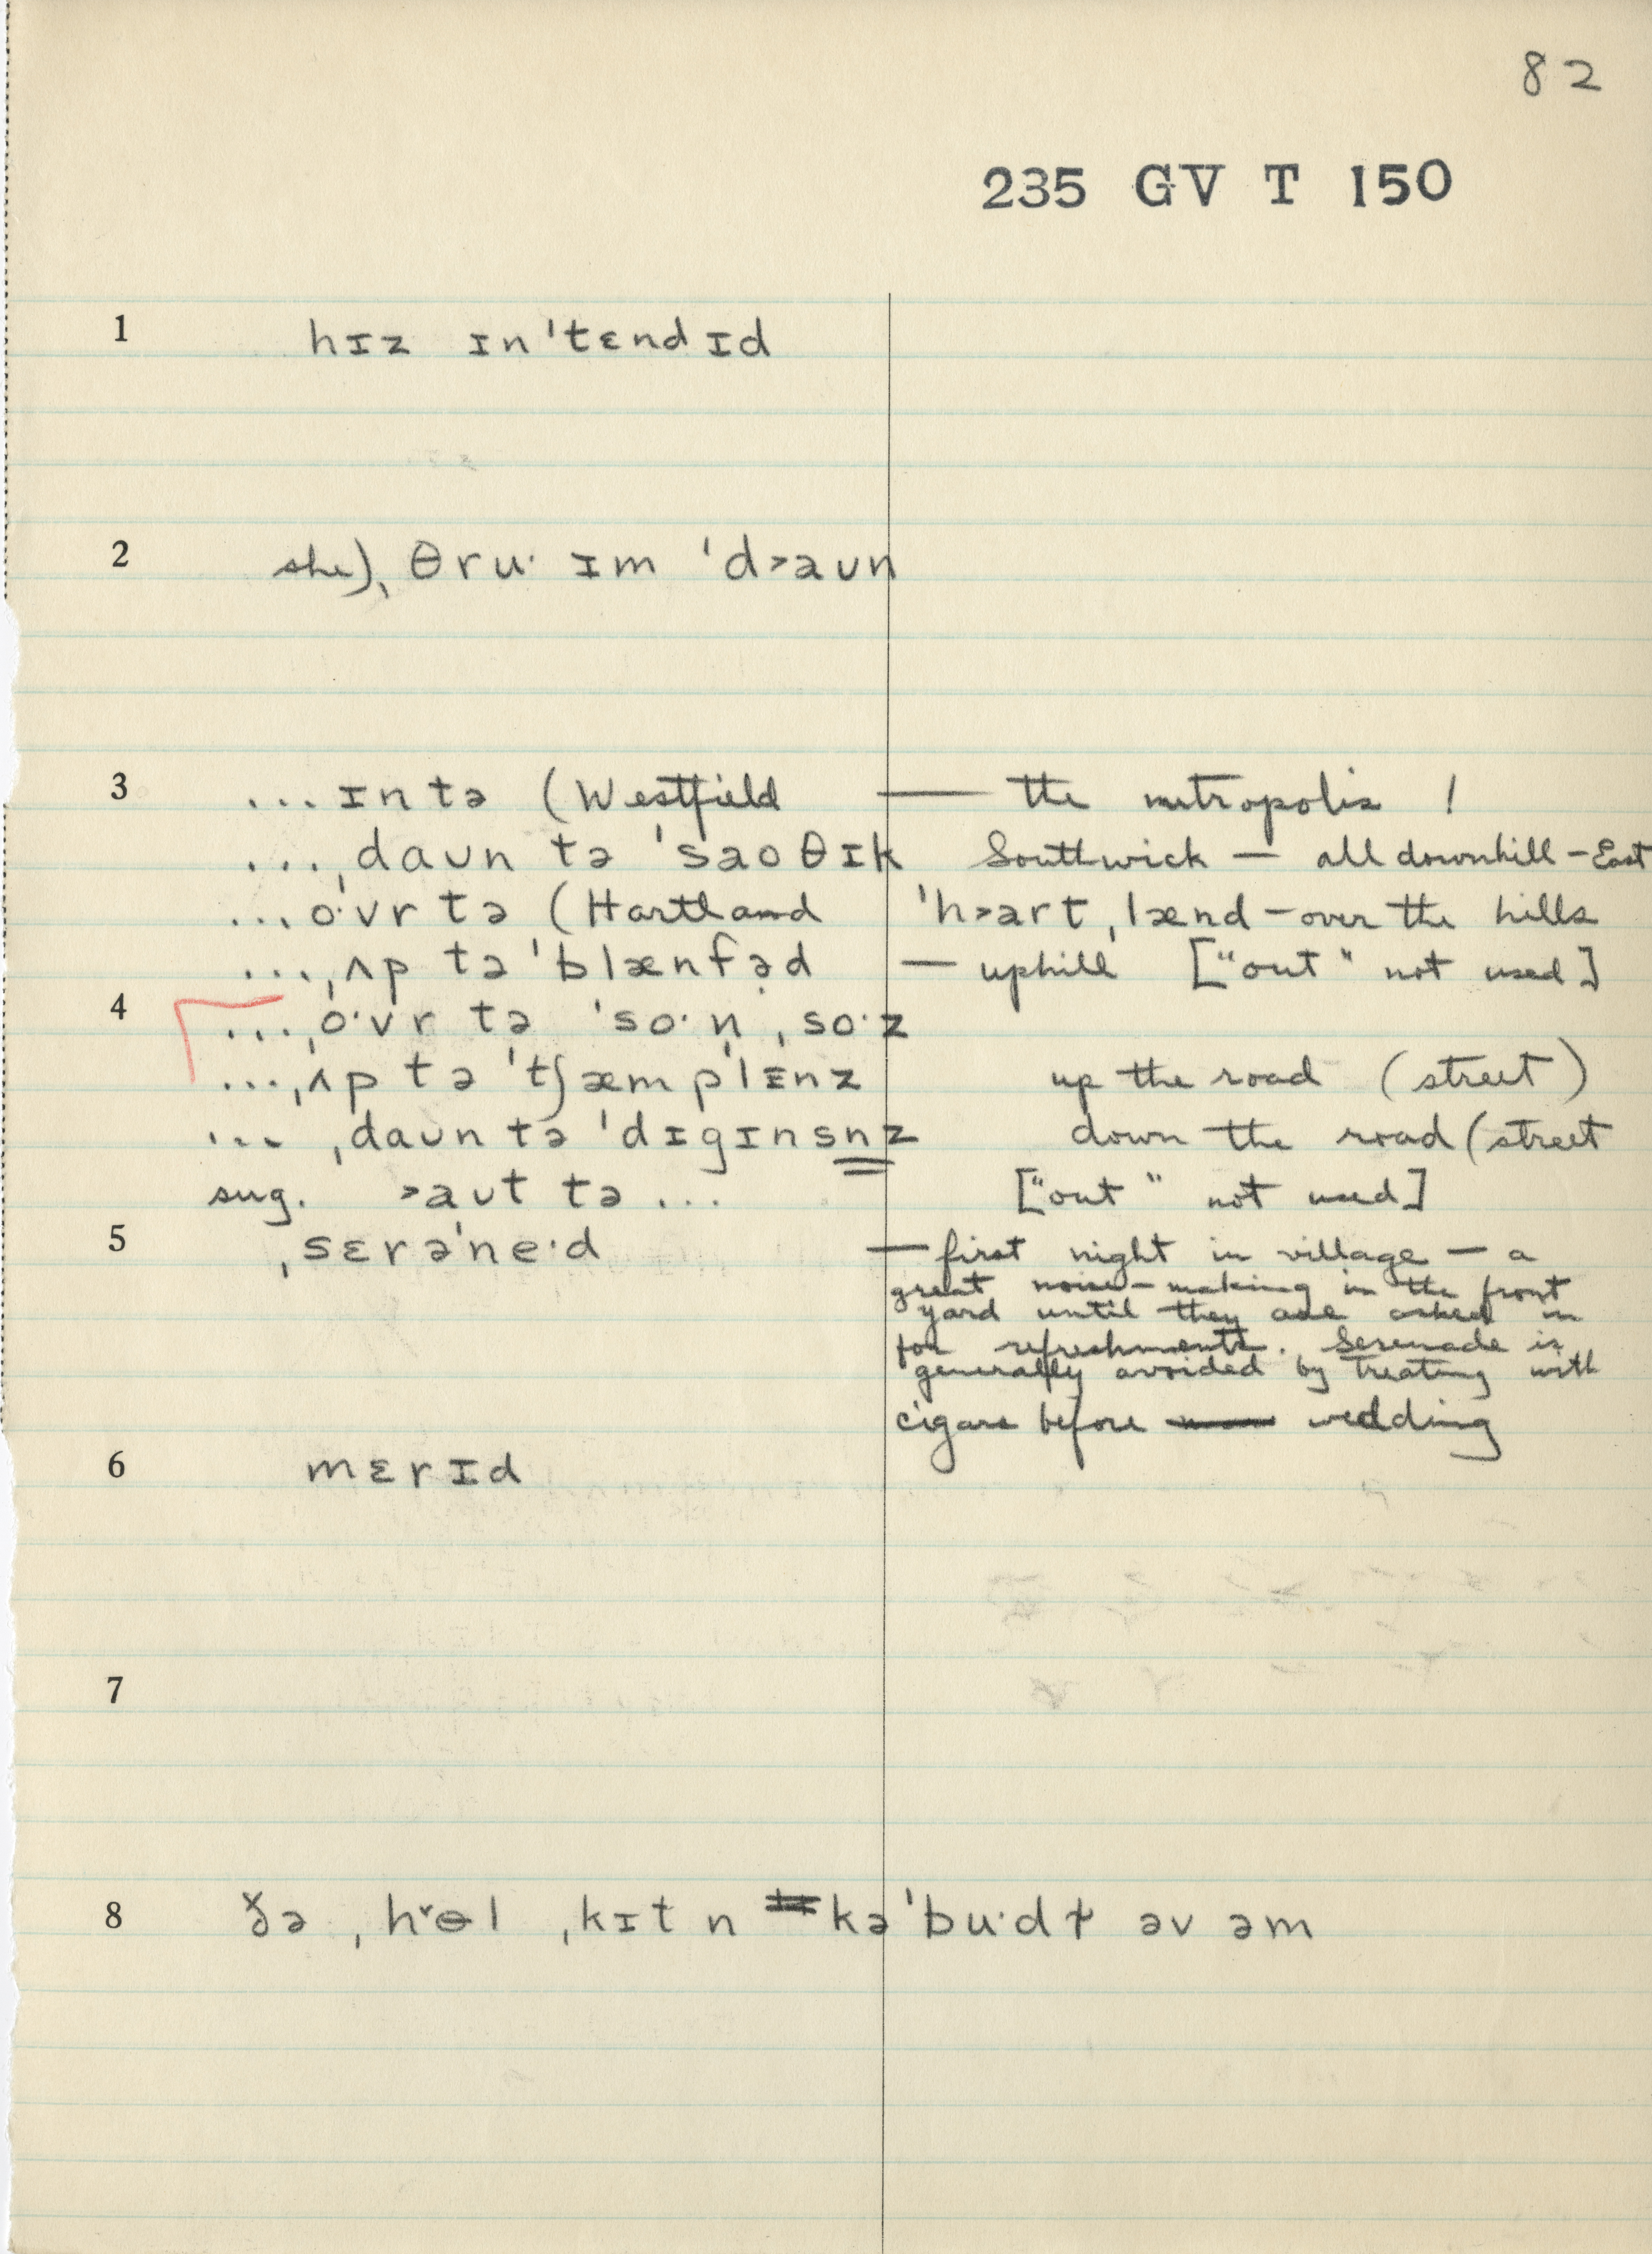 82
235 GV T 150
1 hɪz ɪn'tɛndɪd
2 she)ˌ θru· ɪm 'd>aʊn
3 ...ɪn tə (Westfield — the metropolis !
...ˌdaʊn tə 'saoθɪk Southwick — all downhill – East
...o·vr tə (Hartland 'h>artˌlænd – over the hills
...ˌʌp tə 'blænfə̣d — uphill ["out" not used]
4 ...ˌo·vr tə 'so·n̩ˌso·z
...ˌʌp tə 'tʃæmp'lɪnz up the road (street)
... ˌdaʊn tə 'dɪgɪnsnz down the road (street
sug. >aʊt tə ... ["out" not used]
5 ˌsɛrə'ne·d — first night in village — a
great noise-making in the front
yard until they are asked in
for refreshments. Serenade is
generally avoided by treating with
cigars before wedding
6 mɛrɪd
7
8 ðə ˌh˅ɵl ˌkɪt n kə'bu·dɫ əv əm